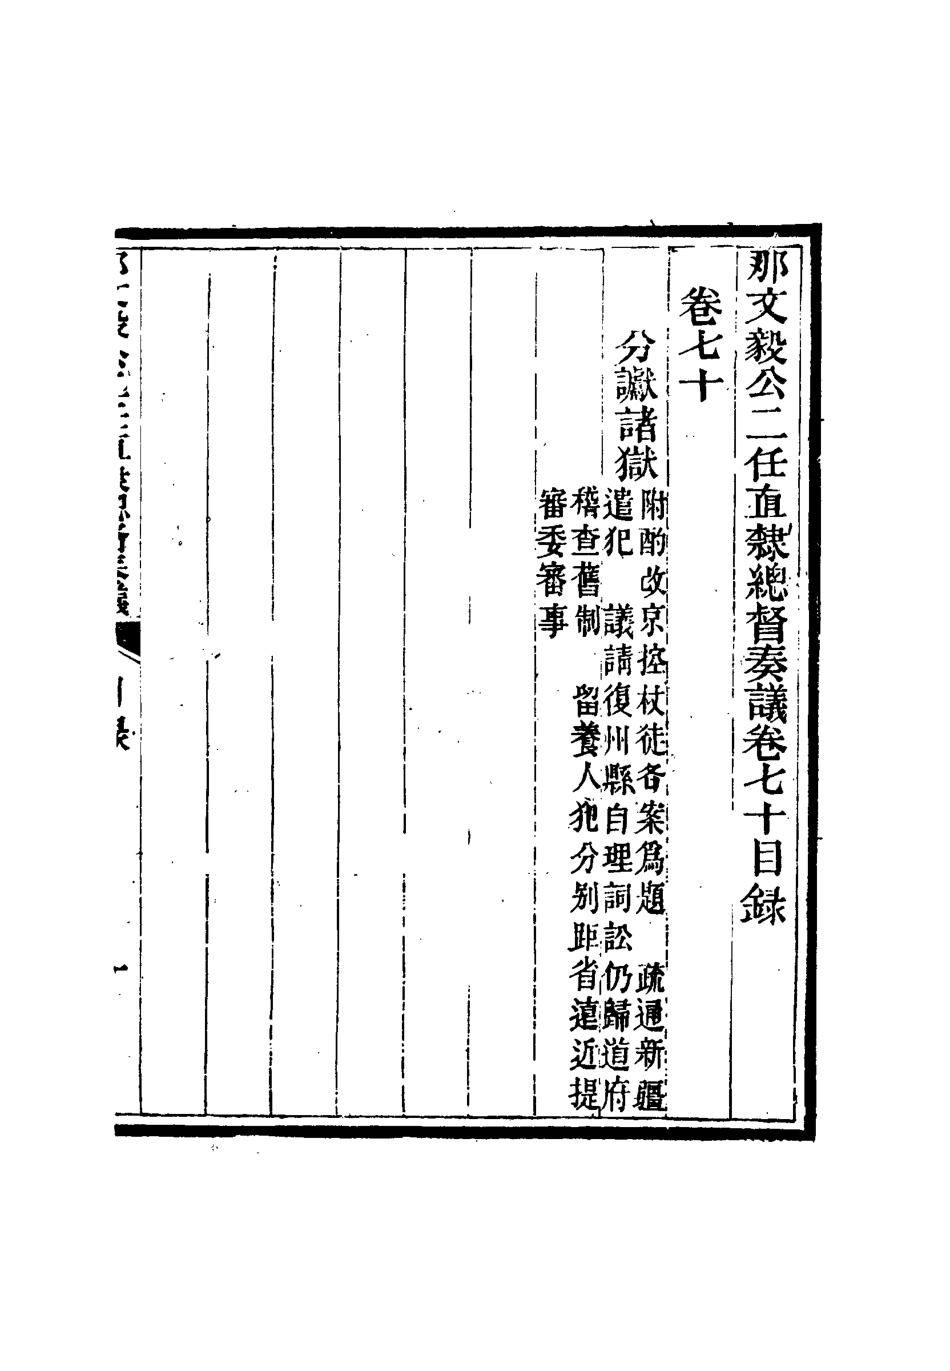 那文毅公二任直隸總督奏議卷七十目録
卷七十
分讞諸獄
附酌改京控杖徒各案爲題　疏通新疆
遣犯　議請復州縣自理詞訟仍歸道府
稽查舊制　留養人犯分別距省遠近提
審委審事
那文毅公二任直隸總督奏議
目録
一